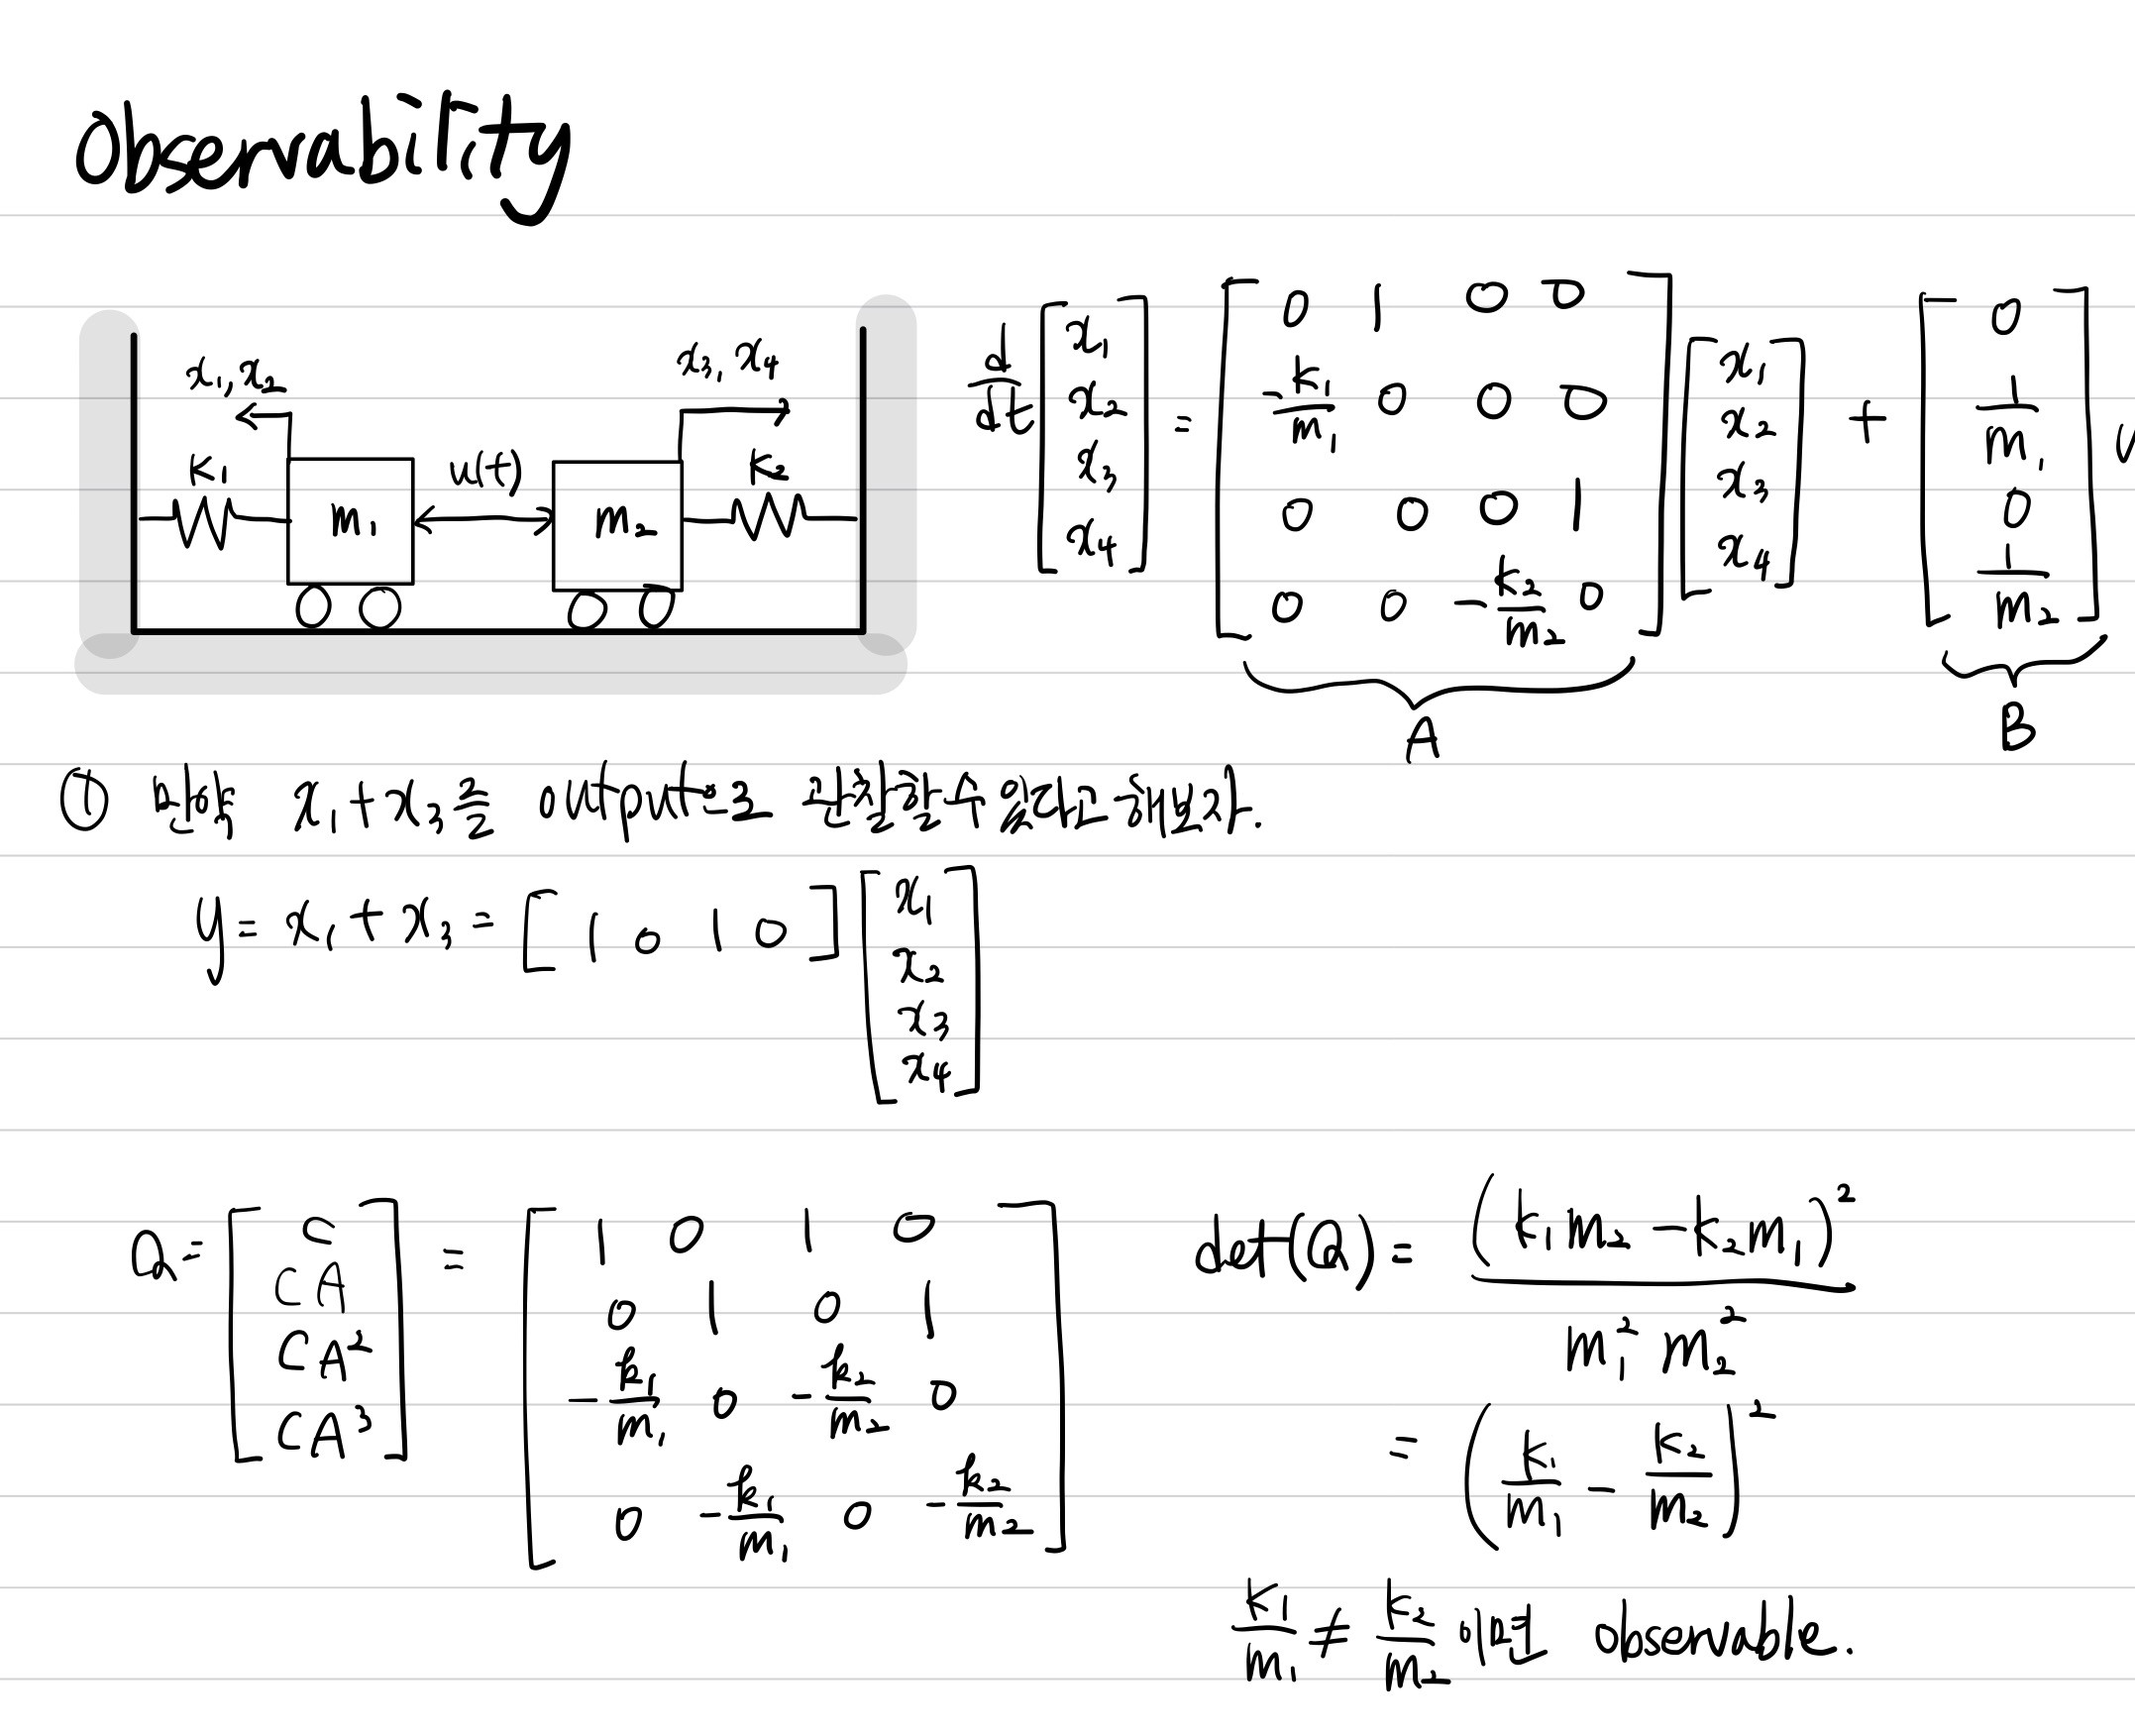 Observability
x₁, x₂
x₃, x₄
k₁
m₁
u(t)
m₂
k₂
d/dt [x₁ x₂ x₃ x₄] = [0 1 0 0; -k₁/m₁ 0 0 0; 0 0 0 1; 0 0 -k₂/m₂ 0] [x₁ x₂ x₃ x₄] + [0 1/m₁ 0 1/m₂]
A
B
① 만약 x₁+x₃를 output으로
y = x₁ + x₃ = [1 0 1 0] [x₁ x₂ x₃ x₄]
Q = [C; CA; CA²; CA³] = [1 0 1 0; 0 1 0 1; -k₁/m₁ 0 -k₂/m₂ 0; 0 -k₁/m₁ 0 -k₂/m₂]
det(Q) = (k₁m₂ - k₂m₁)² / m₁² m₂²
= (k₁/m₁ - k₂/m₂)²
k₁/m₁ ≠ k₂/m₂ 이면 observable.